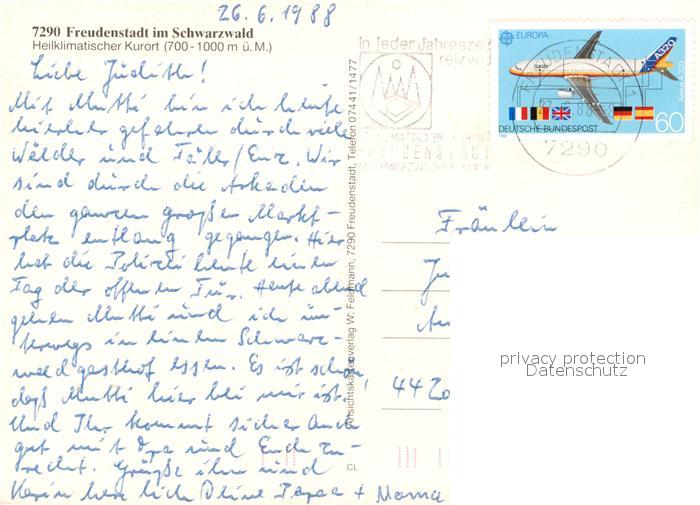 26.6.1988
7290 Freudenstadt im Schwarzwald
Heilklimatischer Kurort (700-1000 m ü. M.)
Liebe Judith!
Mit Mutti bin ich heute
hierher gefahren durch viele
Wälder und Täler/Enz. Wir
sind durch die Arkaden
den ganzen großen Markt-
platz entlang gegangen. Hier
hat die Polizei heute einen
Tag der offenen Tür. Heute abend
gehen Mutti und ich un-
terwegs in einen Schwarz-
waldgasthof essen. Es ist schön
daß Mutti hier bei mir ist!
Und Ihr kommt sicher auch
gut mit Opa und Euch zu-
recht. Grüße ihn und
Karin herzlich Deine Papa + Mama
Ansichtskartenverlag W. Feldmann, 7290 Freudenstadt, Telefon 07441/1477
CL
in jeder Jahreszeit
reizvoll
FREUDENSTADT
EUROPA
A320
Airbus A320
60
DEUTSCHE BUNDESPOST
FREUDENSTADT 1
7290
Fräulein
Ju
44
privacy protection
Datenschutz